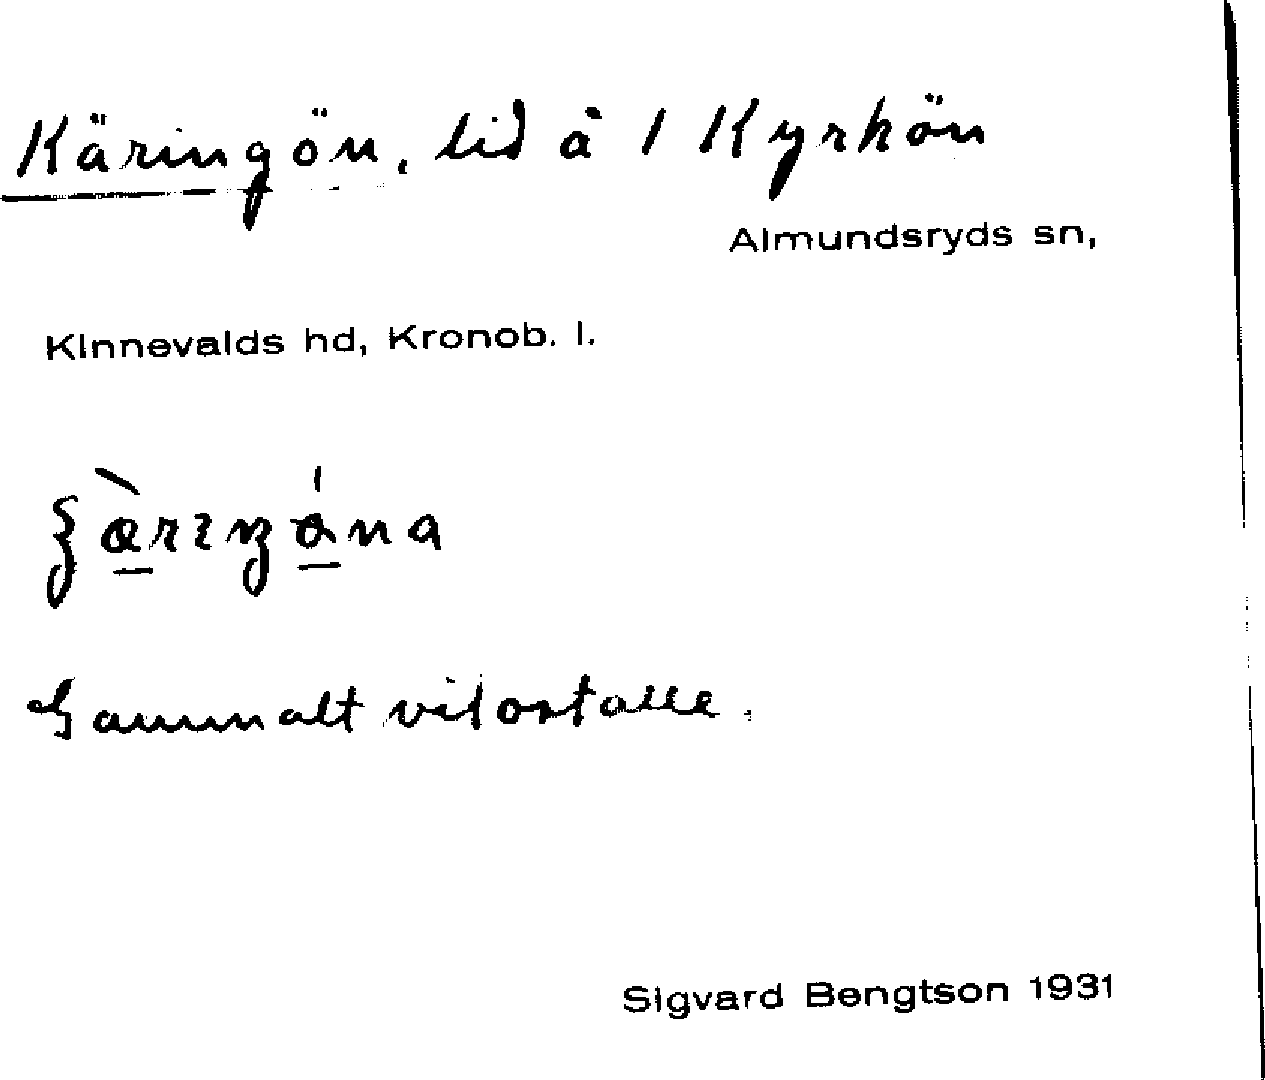 Käringön, lid å 1 Kyrkön
Almundsryds sn,
Kinnevalds hd, Kronob. l.
Gammalt vilostalle.
Sigvard Bengtson 1931